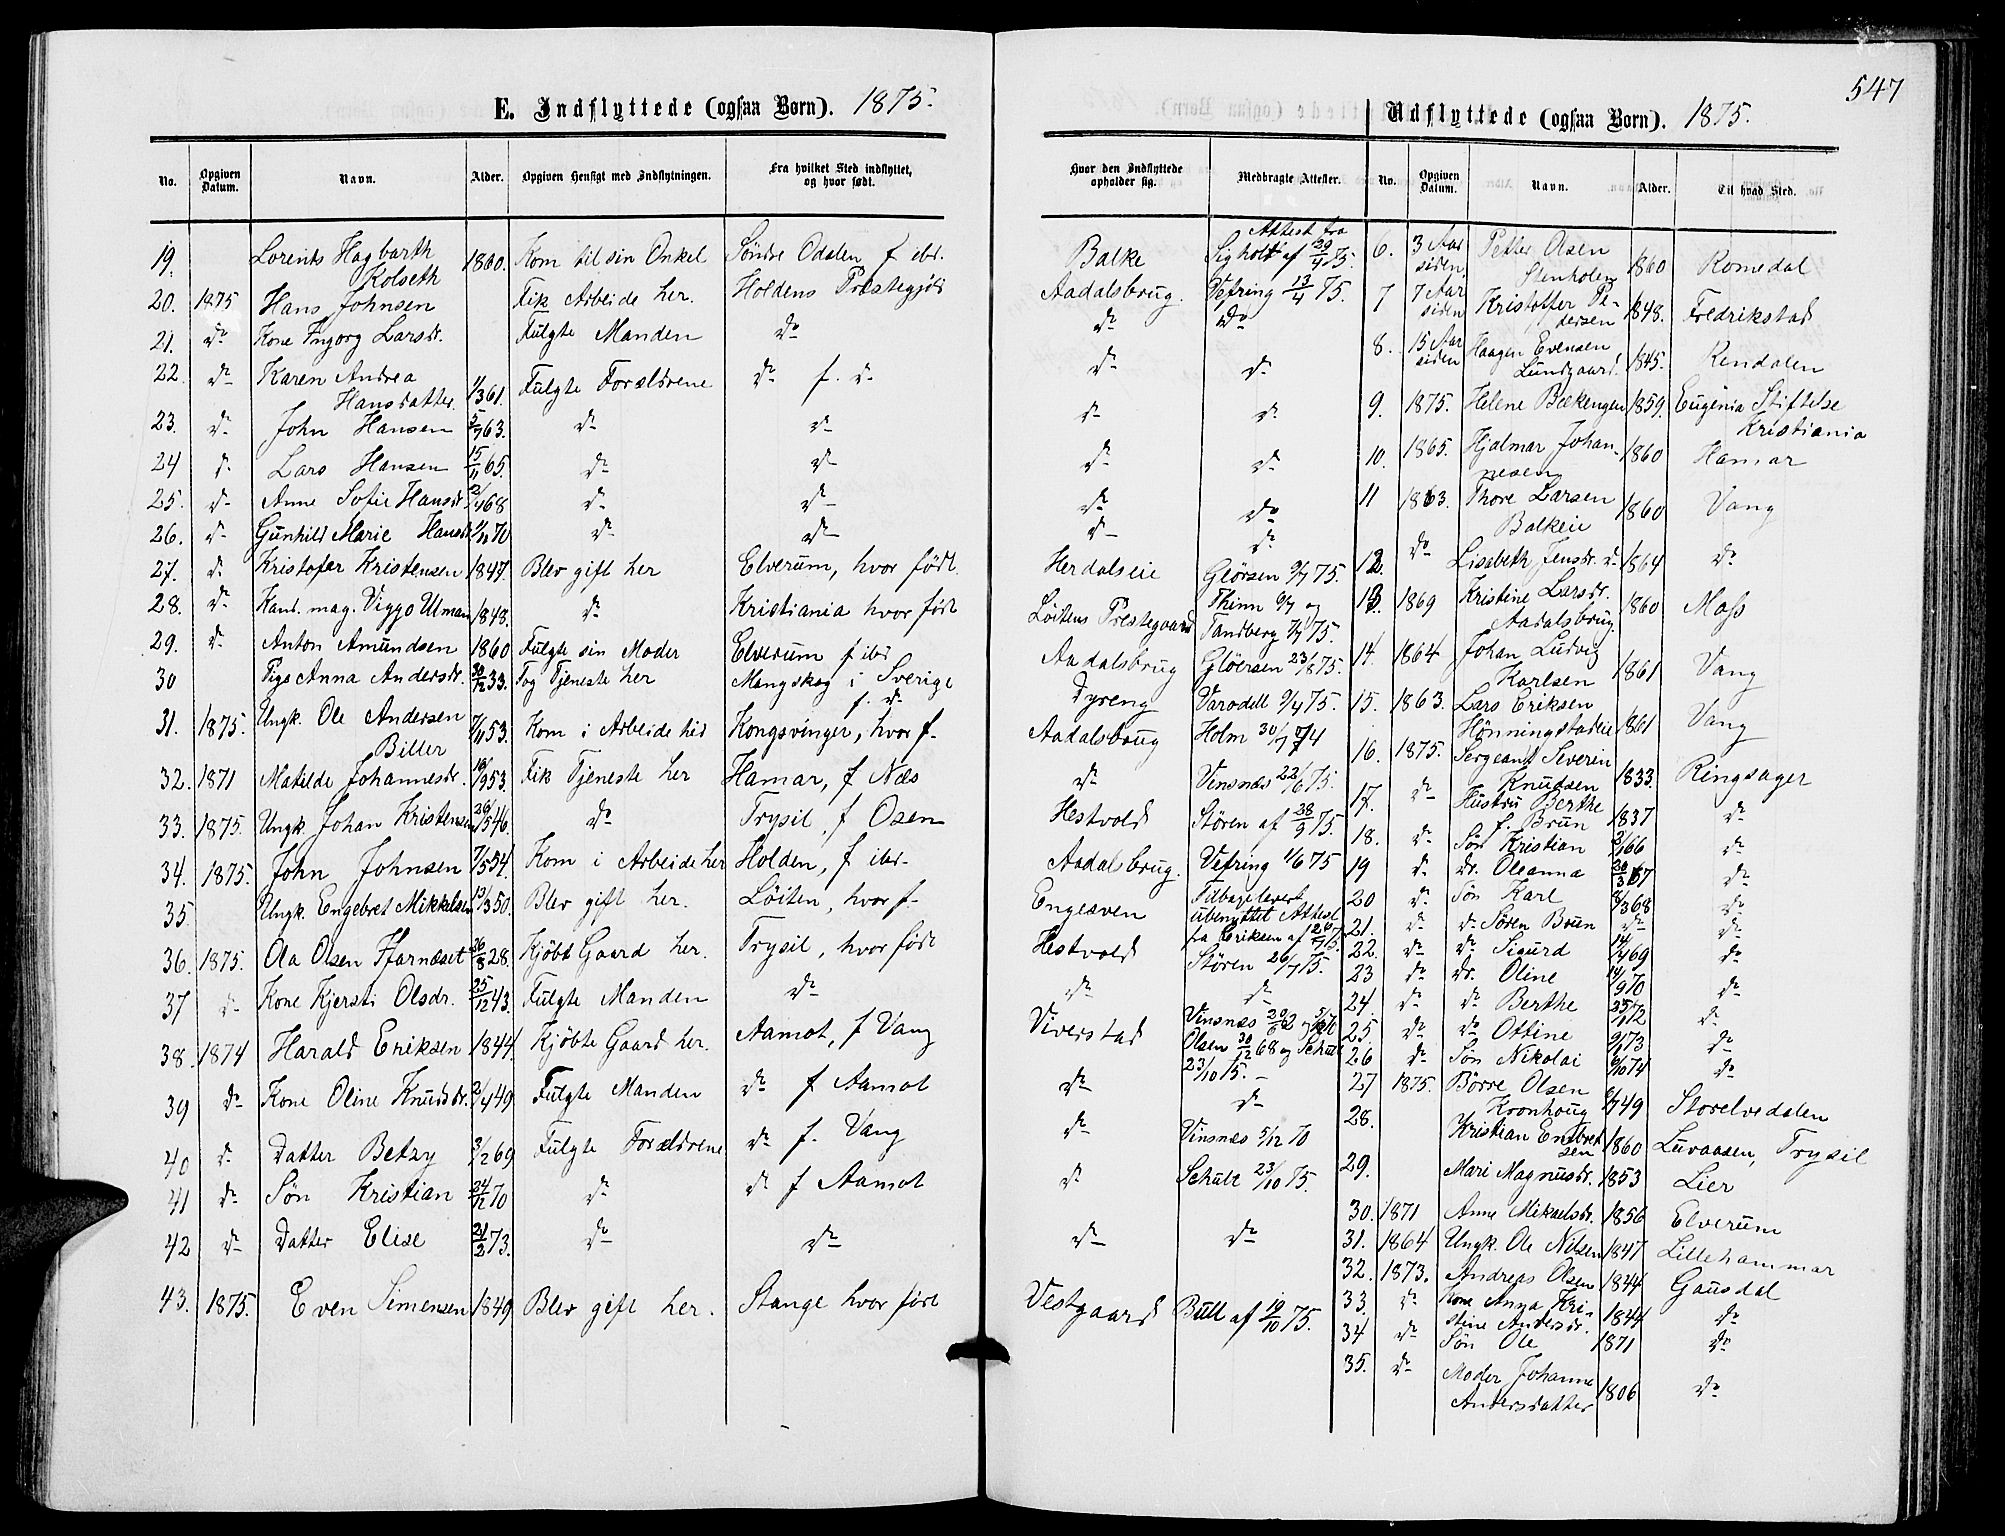 E. Indflyttede (ogsaa Børn). 1875.
No. Opgiven Datum. Navn. Alder. Opgiven Hensigt med Indflytningen. Fra hvilket Sted indflyttet, og hvor født.
19. Lorents Hagbarth Kolseth 1860. Kom til sin Onkel Söndre Odalen f ibd.
20. 1875 Hans Johnsen Fik Arbeide her. Holdens Præstegjæld
21. do Kone Ingborg Larsdr. Fulgte Manden do
22. do Karen Andrea Hansdatter. 1/3 61. Fulgte Forældrene do f. do
23. do John Hansen 5/7 63. do do
24 do Lars Hansen 15/11 65. do do
25. do Anne Sofie Hansdr. 2/4 68 do do
26. do Gunhild Marie Hansdr 1/11 70 do do
27. do Kristofer Kristensen 1847. Blev gift her Elverum, hvor født.
28. do Kand. mag. Viggo Ulman 1848. do Kristiania hvor født
29. do Anton Amundsen 1860 Fulgte sin Moder Elverum f ibd
30 Pige Anna Andersdr. 30/12 33. Tog Tjeneste her Mangskog i Sverige f. do
31. 1875. Ungk. Ole Andersen Biller 7/11 53. Kom i Arbeide hid Kongsvinger, hvor f.
32. 1871 Matilde Johannesdr. 16/9 53. Fik Tjeneste her Hamar, f Næs
33. 1875. Ungk. Johan Kristensen 26/5 46. do Trysil, f Osen
34. 1875. John Johnsen 7/5 54. Kom i Arbeide her Holden, f ibd.
35 Ungk. Engebret Mikkelsen 13/3 50. Blev gift her. Løiten, hvor f.
36. 1875. Ola Olsen Hjarnæset 26/8 28. Kjöbt Gaard her. Trysil, hvor födt
37 do Kone Kjersti Olsdr. 25/12 43. Fulgte Manden do
38. 1874 Harald Eriksen 1844. Kjöbte Gaard her. Aamot, f Vang
39 do Kone Oline Knudsdr. 2/4 49 Fulgte Manden do f Aamot
40 do Datter Betzy 3/2 69 Fulgte Forældrene do f. Vang
41 do Søn Kristian 24/12 70 do do f Aamot
42 do Datter Elise 21/2 73. do do
43. 1875. Even Simensen 1849 Blev gift her. Stange hvor födt
547
Udflyttede (ogsaa Børn). 1875.
Hvor den Indflyttede opholder sig. Medbragte Attester. No. Opgiven Datum. Navn. Alder. Til hvad Sted.
Balke Attest fra Sigholt af 29/4 75.
Aadalsbrug. Vefring 13/4 75.
do do
do do
do do
do do
do do
do do
Herdalseie Glörsen 9/7 75.
Løitens Prestegaard Thinn 9/7 og Tandberg 7/7 75.
Aadalsbrug Glöersen 23/8 75.
Dyreng Varodell 9/4 75.
Aadalsbrug Holm 30/7 74
do Vinsnæs 22/6 75.
Hestvold Stören af 28/9 75.
Aadalsbrug. Vefring 1/6 75
Engesven Tilbageleveret ubenyttet Attest fra Eriksen af 26/7 75.
Hestvold Stören 26/7 75.
do do
Viverstad Vinsnæs Olsen 30/12 68 og Schult 23/10 75.
do do
do Vinsnæs 5/12 70
do Schult 23/10 75.
do do
Vestgaard Bull af 19/10 75.
6. 3 Aar siden. Petter Olsen Stenholen 1860 Romedal
7 7 Aar siden Kristoffer Pedersen 1848. Fredrikstad
8. 15 Aar siden Haagen Evensen Lundgaard. 1845. Rendalen
9. 1875. Helene Bækengen 1859. Eugenia Stiftelse Kristiania
10. 1865. Hjalmar Johannesen 1860 Hamar
11 1863. Thore Larsen Balkeie 1860 Vang
12. do Lisabeth Jensdr. do 1864 do
13. 1869 Kristine Larsdr. Aadalsbrug. 1860 Moss
14. 1864 Johan Ludvig Karlsen 1861 Vang
15. 1863. Lars Eriksen Hönningstadeie 1861 Vang
16. 1875. Sergeant Severin Knudsen 1833. Ringsager
17. do Hustru Berthe f. Brun 1837 do
18. do Søn Kristian 2/1 66 do
19 do dr. Oleanna 30/3 67 do
20 do Søn Karl 8/3 68 do
21. do do Sören Brun do do
22. do do Sigurd 14/4 69 do
23 do dr. Oline 14/9 70 do
24. do do Berthe 25/11 72 do
25. do do Ottine 9/1 73 do
26 do Søn Nikolai 6/10 74 do
27 1875. Börre Olsen Kronhoug 6/7 49 Storelvedalen
28. Kristian Engbretsen 1860 Luraasen, Trysil
29. Mari Magnusdr. 1853 Lier
30. 1871 Anne Mikaelsdr. 1856 Elverum
31. 1864 Ungk. Ole Nilsen 1847 Lillehammar
32. 1873. Andreas Olsen 1844 Gausdal
33. do Kone Anna Kristine Andersdr. 1844 do
34 do Søn Ole 1871 do
35. do Moder Johanne Andersdatter 1806 do